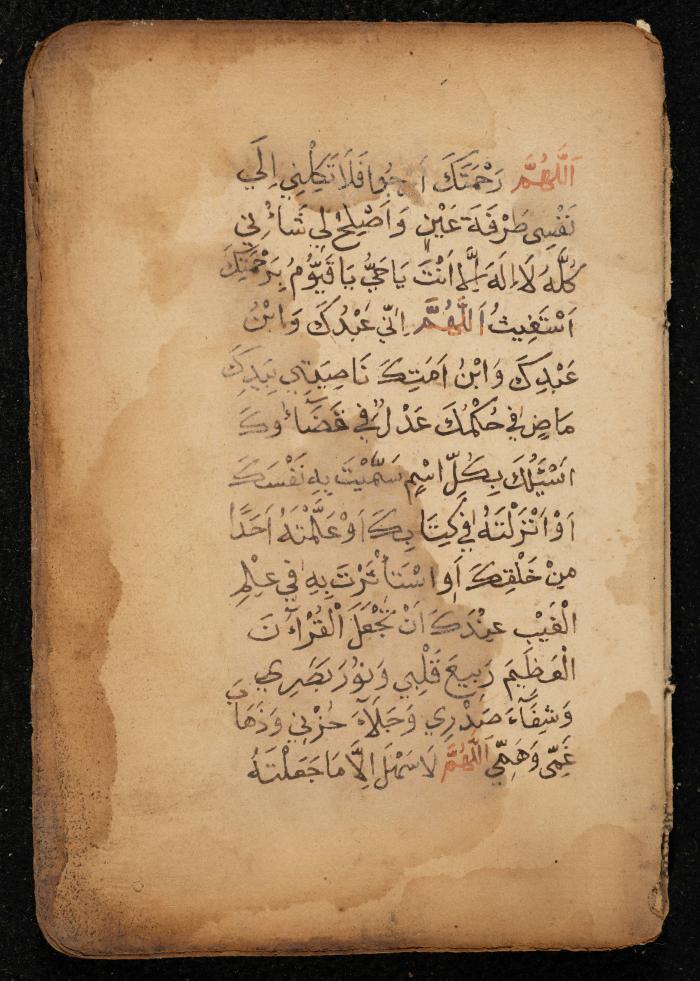 اَللّٰهُمَّ رَحْمَتَكَ اَرْجُوا فَلَا تَكِلْنِي اِلَي
نَفْسِي طَرْفَةَ عَيْنٍ وَاَصْلِحْ لِي شَاءْنِي
كُلَّهُ لَا اِلَهَ اِلَّا اَنْتَ يَا حَيُّ يَا قَيُّوْمُ بِرَحْمَتِكَ
اَسْتَغِيثُ اَللّٰهُمَّ اِنِّي عَبْدُكَ وَابْنُ
عَبْدِكَ وَابْنُ اَمَتِكَ نَاصِيَتِي بِيَدِكَ
مَاضٍ فِي حُكْمُكَ عَدْلٌ فِي قَضَاءُوكَ
اَسْئَلُكَ بِكُلِّ اسْمٍ سَمَّيْتَ بِهِ نَفْسَكَ
اَوْ اَنْزَلْتَهُ فِي كِتَابِكَ اَوْ عَلَّمْتَهُ اَحَدًا
مِنْ خَلْقِكَ اَوِ اسْتَأْثَرْتَ بِهِ فِي عِلْمِ
الْغَيْبِ عِنْدَكَ اَنْ تَجْعَلَ الْقُرْاٰنَ
الْعَظِيمَ رَبِيعَ قَلْبِي وَنُوْرَ بَصَرِي
وَشِفَآءَ صَدْرِي وَجَلَآءَ حُزْنِي وَذَهَابَ
غَمِّي وَهَمِّي اَللّٰهُمَّ لَا سَهْلَ اِلَّا مَا جَعَلْتَهُ